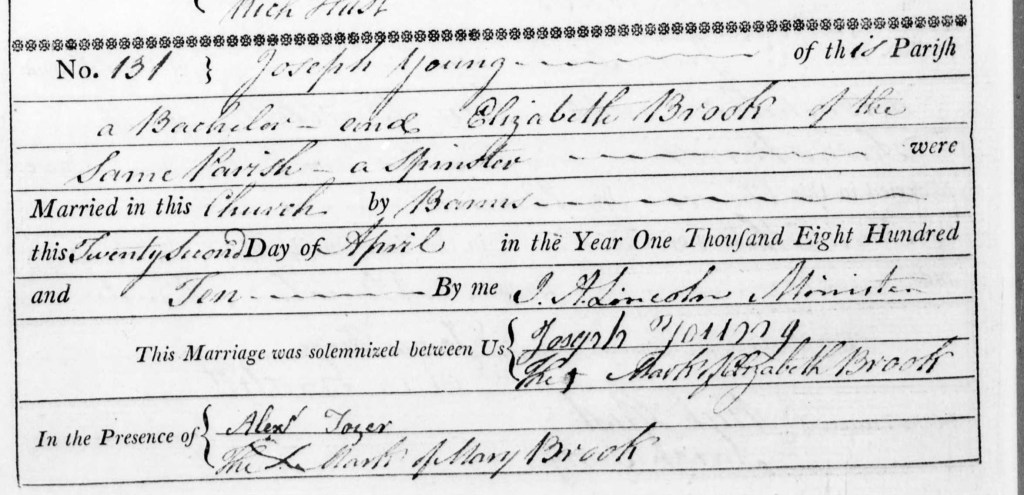 Rich Hust
No. 131 } Joseph Young of this Pariſh
a Bachelor - and Elizabeth Brook of the
Same Parish - a Spinster were
Married in this Church by Banns
this Twenty Second Day of April in the Year One Thouſand Eight Hundred
and Ten By me J. A Lincoln Minister
This Marriage was solemnized between Us { Joseph Young
The x Mark of Elizabeth Brook
In the Presence of { Alexr Tozer
The x Mark of Mary Brook